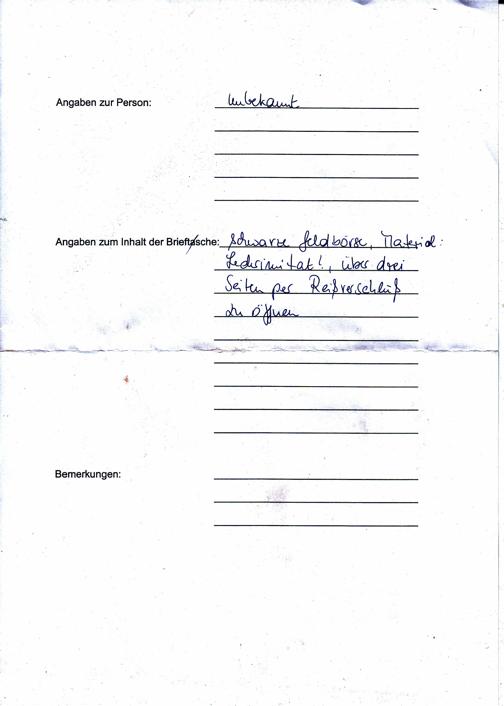 Angaben zur Person: Unbekannt
Angaben zum Inhalt der Brieftasche: Schwarze Geldbörse, Material:
Lederimitat!, über drei
Seiten per Reißverschluß
zu öffnen
Bemerkungen: